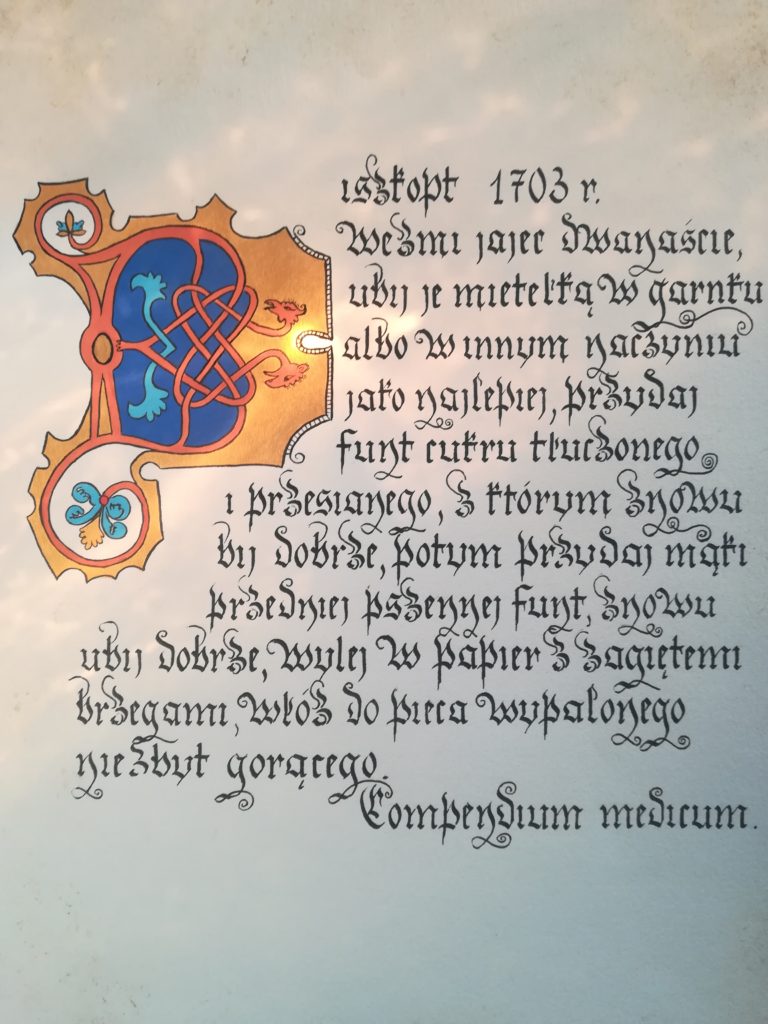 Biszkopt 1703 r.
Weźmi jajec dwanaście,
ubij je mietełką w garnku
albo w innym naczyniu
jako najlepiej, przydaj
funt cukru tłuczonego
i przesianego, z którym znowu
bij dobrze, potym przydaj mąki
przedniej pszennej funt, znowu
ubij dobrze, wylej w papier z zagiętemi
brzegami, włóż do pieca wypalonego
nie zbyt gorącego.
Compendium medicum.